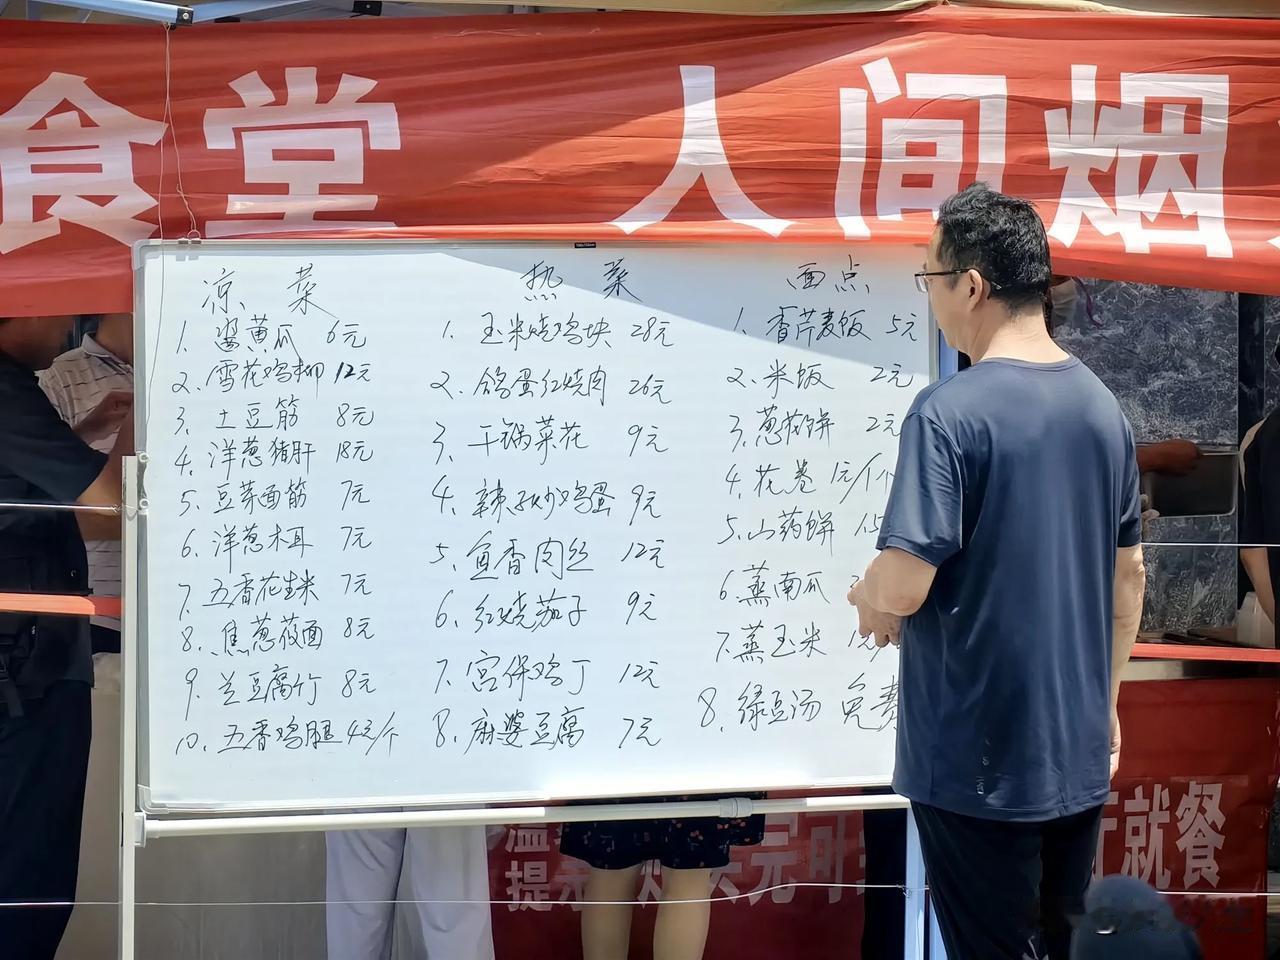 食堂 人间烟
凉菜
1. 酱黄瓜 6元
2. 雪花鸡柳 12元
3. 土豆筋 8元
4. 洋葱猪肝 18元
5. 豆芽面筋 7元
6. 洋葱木耳 7元
7. 五香花生米 7元
8. 焦葱莜面 8元
9. 兰豆腐竹 8元
10. 五香鸡腿 4元/个
热菜
1. 玉米烧鸡块 28元
2. 鸽蛋红烧肉 26元
3. 干锅菜花 9元
4. 辣子炒鸡蛋 9元
5. 鱼香肉丝 12元
6. 红烧茄子 9元
7. 宫保鸡丁 12元
8. 麻婆豆腐 7元
面点
1. 香芹麦饭 5元
2. 米饭 2元
3. 葱花饼 2元
4. 花卷 1元/个
5. 山药饼
6. 蒸南瓜
7. 蒸玉米
8. 绿豆汤 免费
温
提示
元可
就餐